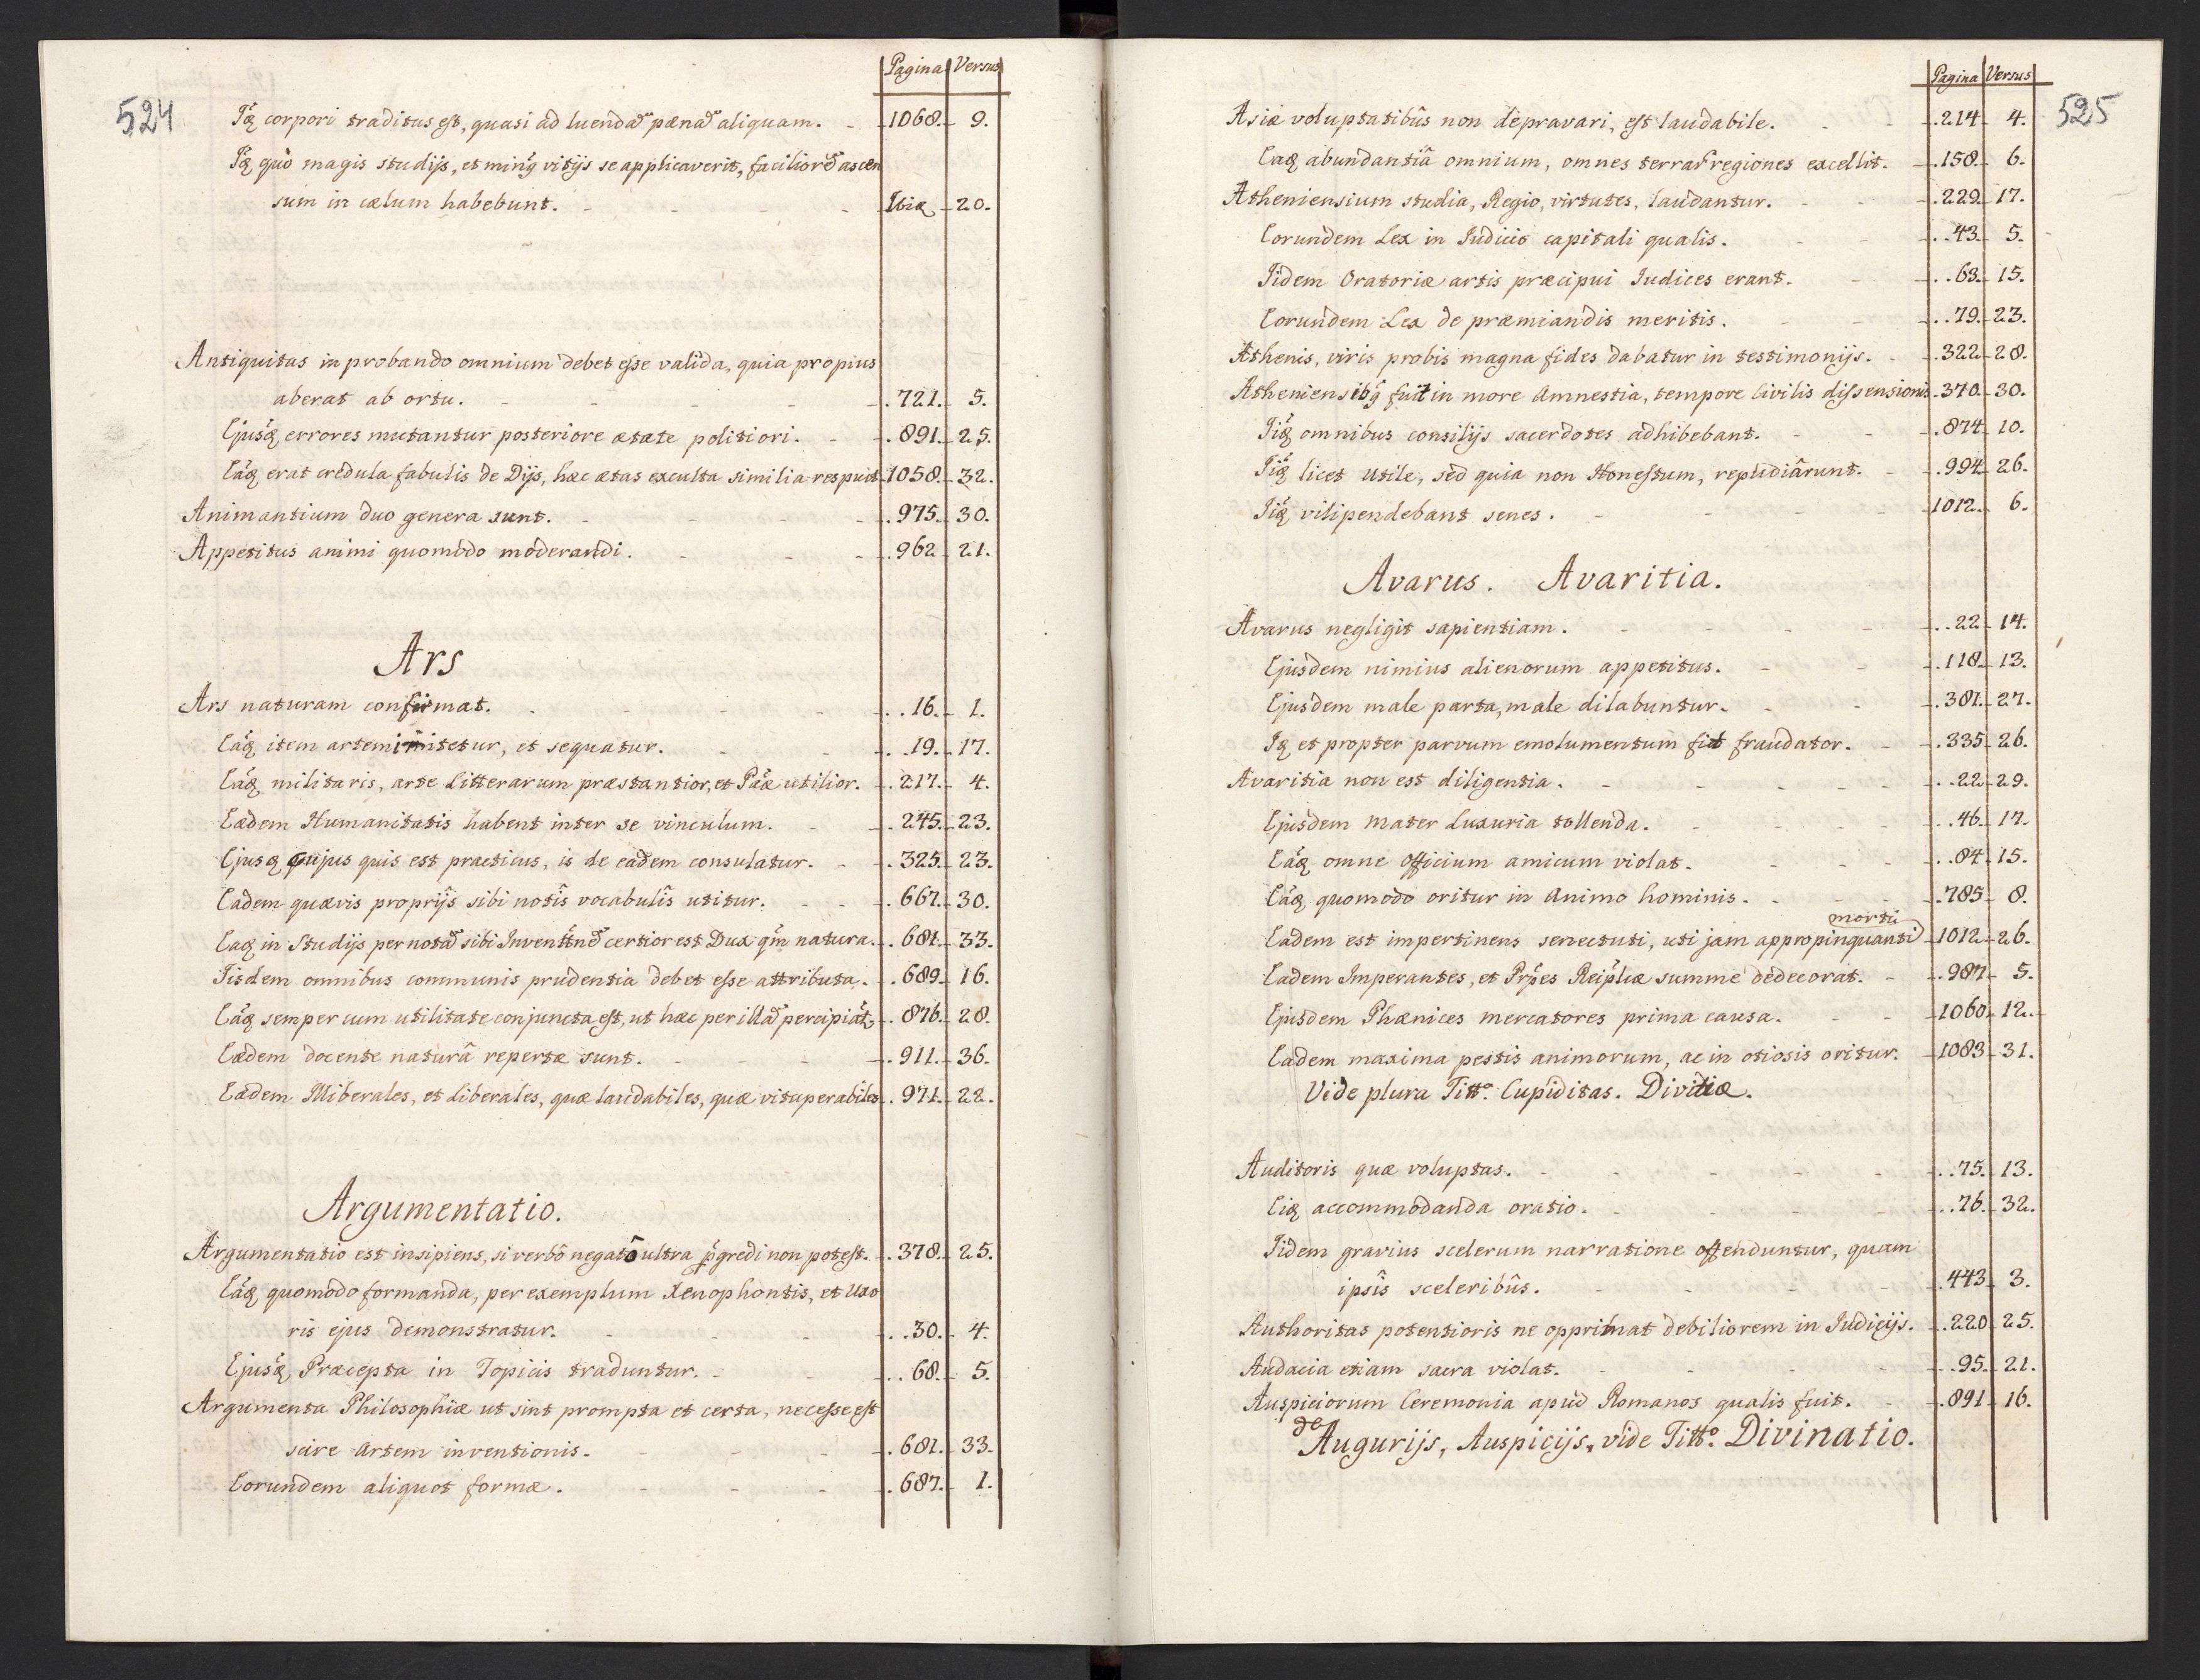 Pagina Versus
524
Iq́ꝫ corpori traditus est, quasi ad luendaꝝ pænaꝝ aliquam. 1068. 9.
Iq́ꝫ quò magis studijs, et minꝰ vitijs se applicaverit, faciliorẽ ascen
sum in cælum habebunt. Ibiꝫ 20.
Antiquitas in probando omnium debet esse valida, quia propius
aberat ab ortu. 721. 5.
Ejusq́ꝫ errores mutantur posteriore ætate politiori. 891. 25.
Eáqꝫ erat credula fabulis de Dijs, hæc ætas exculta similia respuit 1058. 32.
Animantium duo genera sunt. 975. 30.
Appetitus animi quomodo moderandi. 962 21.
Ars
Ars naturam confirmat. 16. 1.
Eáqꝫ item artem imitetur, et sequatur. 19. 17.
Eáqꝫ militaris, arte Litterarum præstantior, et Páæ utilior. 217. 4.
Eædem Humanitatis habent inter se vinculum. 245. 23.
Ejusqꝫ cujus quis est practicus, is de eadem consulatur. 325. 23.
Eadem quævis proprijs sibi notîs vocabulîs utitur. 667. 30.
Eaqꝫ in Studijs per notaꝝ sibi Inventiõnẽ certior est Dux q́m natura. 681. 33.
Iisdem omnibus communis prudentia debet esse attributa. 689. 16.
Eáqꝫ semper cum utilitate conjuncta est, ut hæc per illaꝝ percipiát, 876. 28.
Eædem docente naturâ repertæ sunt. 911. 36.
Eædem Illiberales, et Liberales, quæ laudabiles, quæ vituperabiles 971. 22.
Argumentatio.
Argumentatio est insipiens, si verbô negatô ultra ṕgredi non potest. 378. 25.
Eáqꝫ quomodo formanda, per exemplum Xenophontis, et Uxo
ris ejus demonstratur. 30. 4.
Ejusq́ꝫ Præcepta in Topicis traduntur. 68. 5.
Argumenta Philosophiæ ut sint prompta et certa, necesse est
scire Artem inventionis. 681. 33.
Eorundem aliquot formæ. 687. 1.
Pagina Versus
525
Asiæ voluptatibûs non depravari, est laudabile. 214 4.
Eaqꝫ abundantiâ omnium, omnes terraꝝ regiones excellit. 158. 6.
Atheniensium studia, Regio, virtutes, laudantur. 229. 17.
Eorundem Lex in Iudicio capitali qualis. 43. 5.
Iidem Oratoriæ artis præcipui Iudices erant. 63. 15.
Eorundem Lex de præmiandis meritis. 79. 23.
Athenis, viris probis magna fides dabatur in testimonijs. 322 28.
Atheniensibꝰ fuit in more Amnestia, tempore Civilis dissensionis. 370. 30.
Iiq́ꝫ omnibus consilijs sacerdotes adhibebant. 874 10.
Iiq́ꝫ licet Utile, sed quia non Honestum, repudiârunt. 994 26.
Iiq́ꝫ vilipendebant senes. 1012. 6.
Avarus. Avaritia.
Avarus negligit sapientiam. 22 14.
Ejusdem nimius alienorum appetitus. 118. 13.
Ejusdem male parta, male dilabuntur. 381. 27.
Iqꝫ et propter parvum emolumentum fit fraudator. 335 26.
Avaritia non est diligentia. 22 29.
Ejusdem Mater Luxuria tollenda. 46. 17.
Eáqꝫ omne Officium amicum violat. 84 15.
Eáqꝫ quomodo oritur in Animo hominis. 785 8.
morti
Eadem est impertinens senectuti, uti jam appropinquanti 1012 26.
Eadem Imperantes, et Pŕpes Reipĺicæ summe dedecorat. 987 5.
Ejusdem Phænices mercatores prima causa. 1060 12.
Eadem maxima pestis animorum, ac in otiosis oritur. 1083 31.
Vide plura Titto. Cupiditas. Divitiæ.
Auditoris quæ voluptas. 75. 13.
Eiqꝫ accommodanda oratio. 76. 32.
Iidem gravius scelerum narratione offenduntur, quam
ipsîs sceleribûs. 443 3.
Authoritas potentioris ne opprimat debiliorem in Iudicijs. 220 25.
Audacia etiam sacra violat. 95. 21.
Auspiciorum Ceremonia apud Romanos qualis fuit. 891 16.
de Augurijs, Auspicijs, vide Titto. Divinatio.